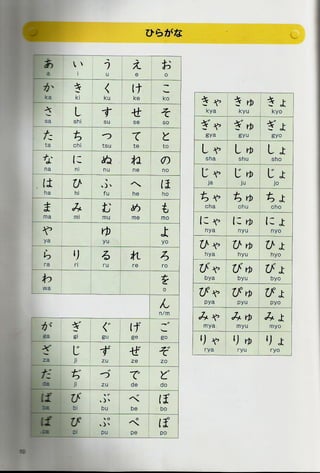 ひらがな
あ い う え お
a i u e o
か き く け こ
ka ki ku ke ko
さ し す せ そ
sa shi su se so
た ち つ て と
ta chi tsu te to
な に ぬ ね の
na ni nu ne no
は ひ ふ へ ほ
ha hi fu he ho
ま み む め も
ma mi mu me mo
や ゆ よ
ya yu yo
ら り る れ ろ
ra ri ru re ro
わ を
wa o
ん
n/m
が ぎ ぐ げ ご
ga gi gu ge go
ざ じ ず ぜ ぞ
za ji zu ze zo
だ ぢ づ で ど
da ji zu de do
ば び ぶ べ ぼ
ba bi bu be bo
ぱ ぴ ぷ ぺ ぽ
pa pi pu pe po
きゃ きゅ きょ
kya kyu kyo
ぎゃ ぎゅ ぎょ
gya gyu gyo
しゃ しゅ しょ
sha shu sho
じゃ じゅ じょ
ja ju jo
ちゃ ちゅ ちょ
cha chu cho
にゃ にゅ にょ
nya nyu nyo
ひゃ ひゅ ひょ
hya hyu hyo
びゃ びゅ びょ
bya byu byo
ぴゃ ぴゅ ぴょ
pya pyu pyo
みゃ みゅ みょ
mya myu myo
りゃ りゅ りょ
rya ryu ryo